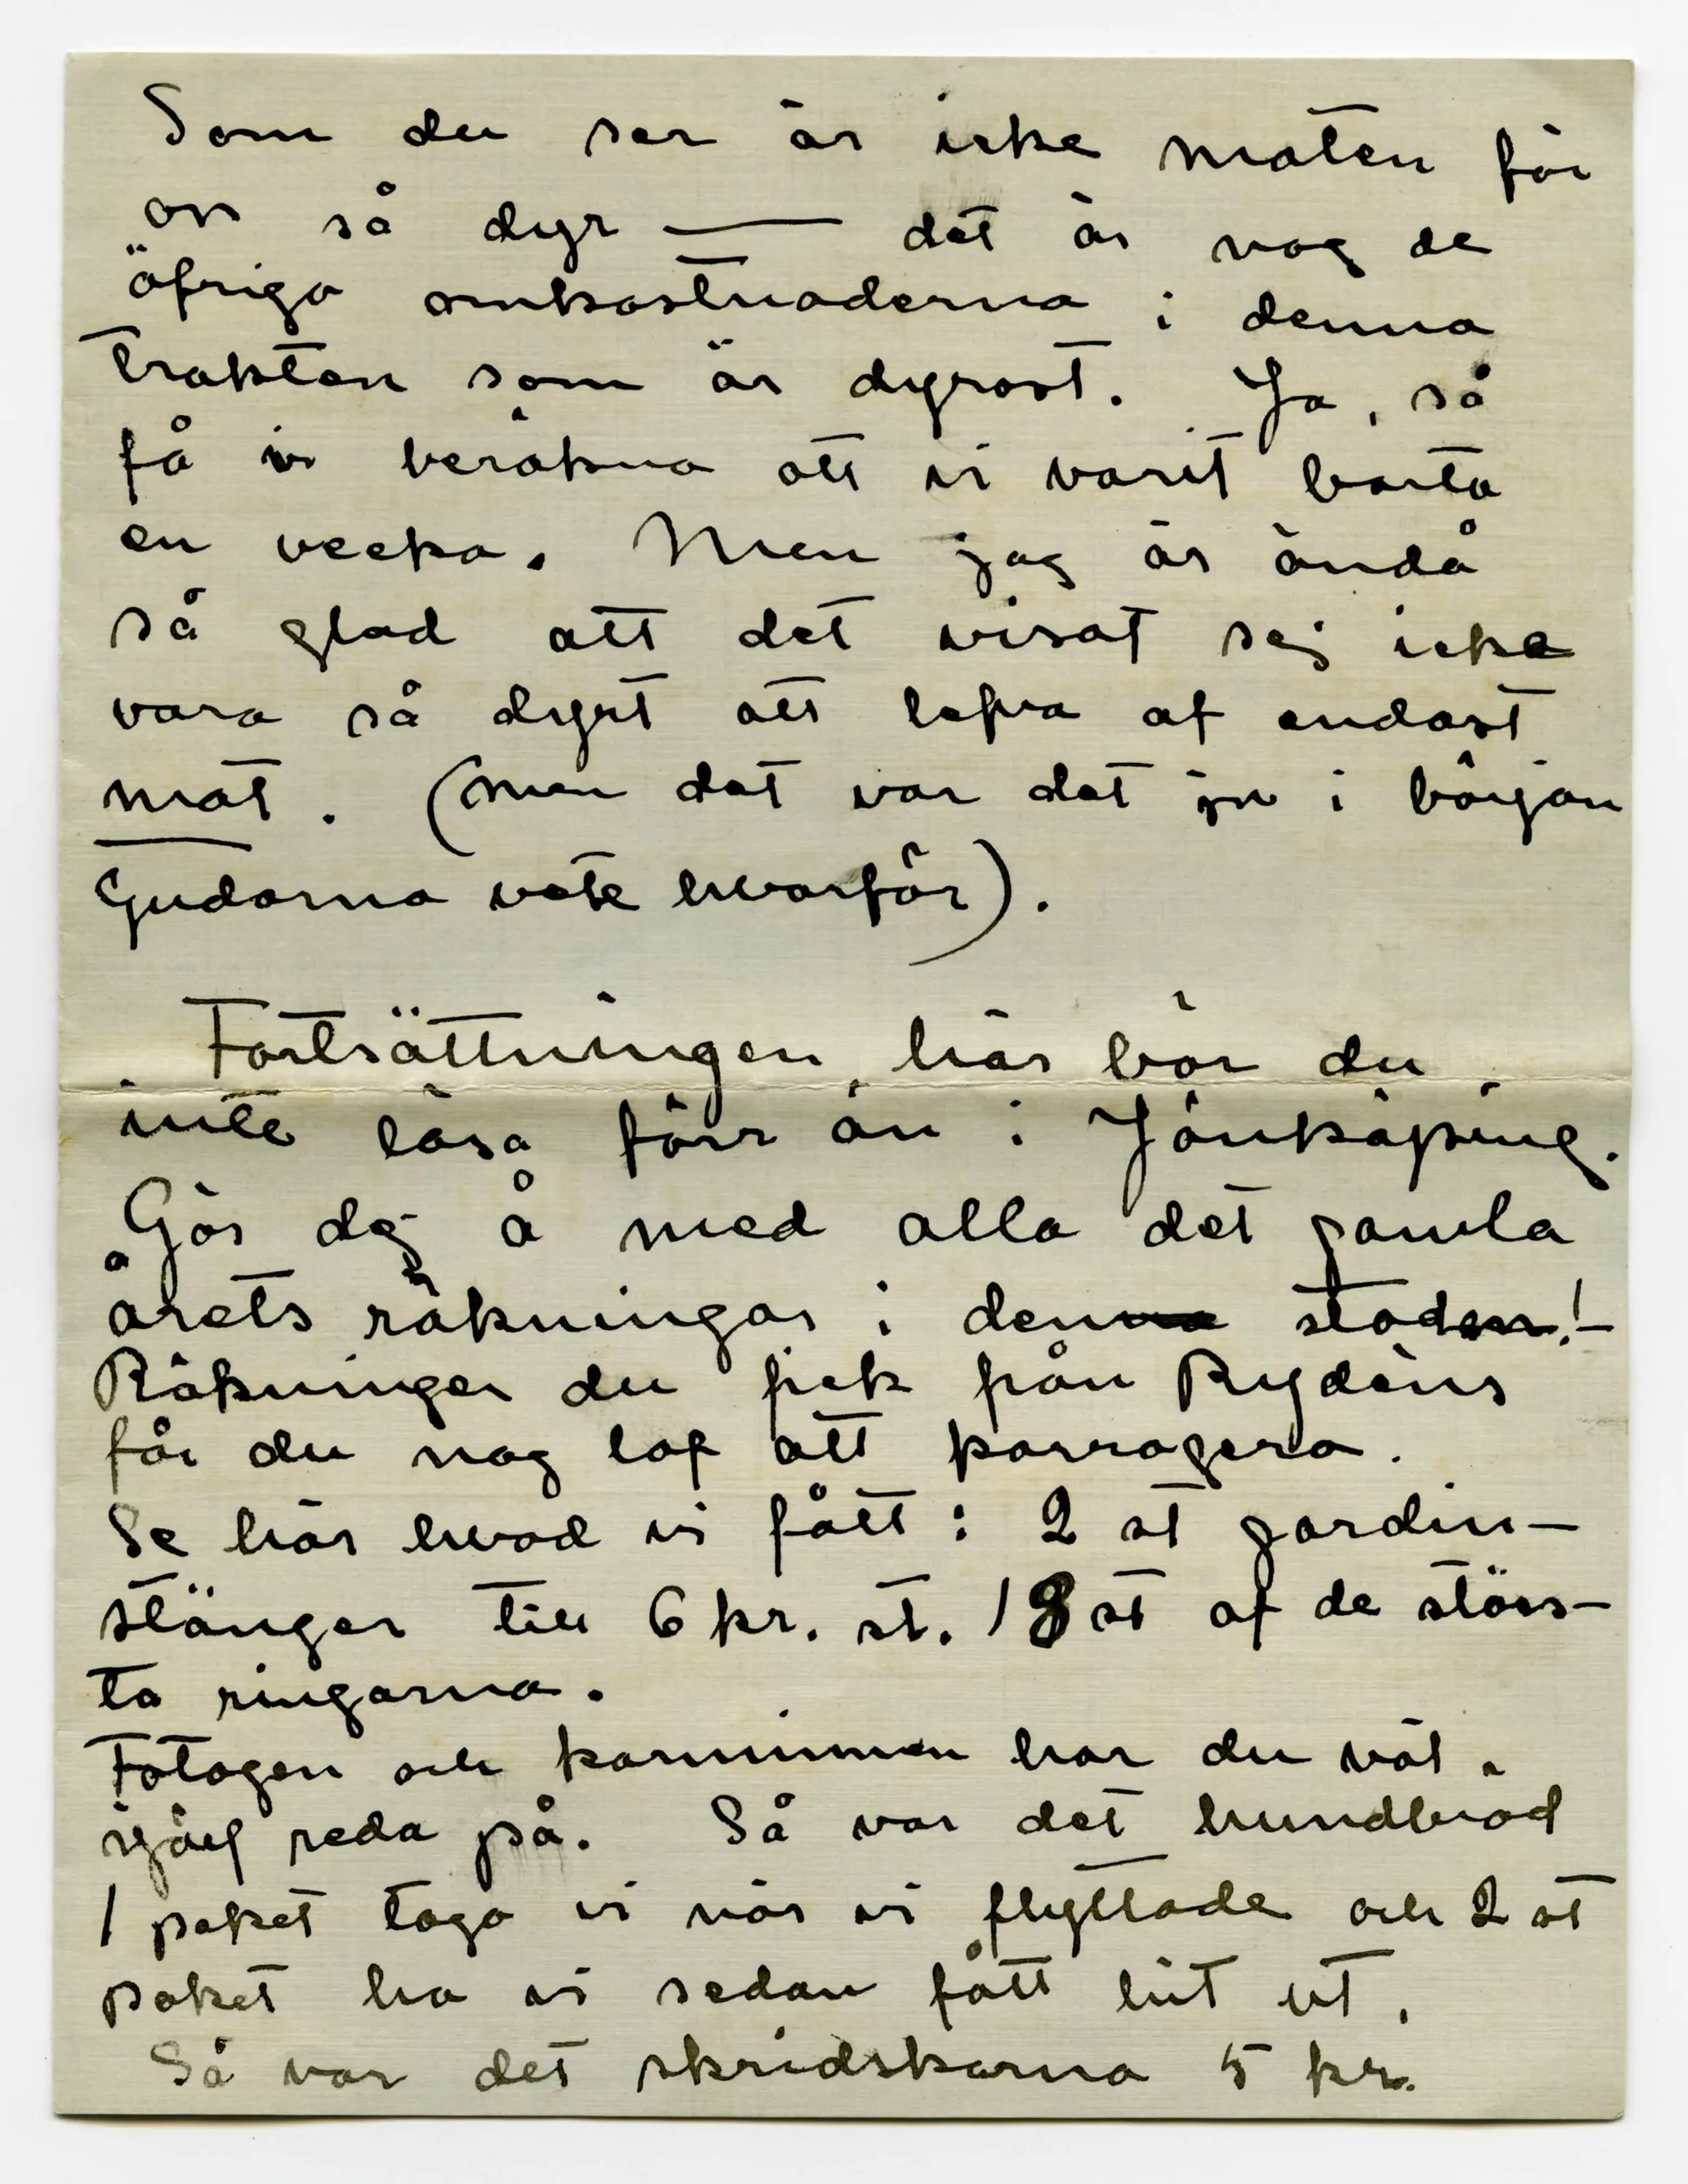 Som du ser är icke maten för
oss så dyr — det är nog de
öfriga omkostnaderna i denna
trakten som är dyrast. Ja, så
få vi beräkna att vi varit borta
en vecka. Men jag är ändå
så glad att det visat sej icke
vara så dyrt att lefva af endast
mat. (men det var det ju i början
Gudarna vete hvarför).
Fortsättningen här bör du
inte läsa förr än i Jönköping.
Gör dej å med alla det gamla
årets räkningar i denna staden!—
Räkningen du fick från Rydéns
får du nog lof att korrogera.
Se här hvad vi fått: 2 st gardin-
stänger till 6 kr. st. 18 st af de störs-
ta ringarna.
Fotogen och kaminen har du väl
själf reda på. Så var det hundbröd
1 paket togo vi när vi flyttade och 2 st
paket ha vi sedan fått hit ut.
Så var det skridskorna 5 kr.